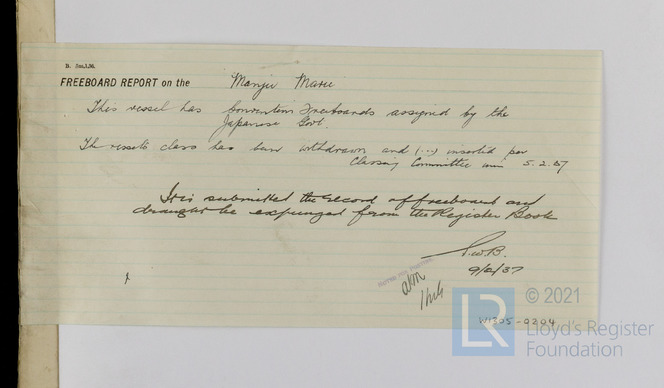 FREEBOARD REPORT on the Manju Maru
This vessel has Convention Freeboards assigned by the
Japanese Govt.
The vessel's class has been withdrawn and (...) inserted per
Classing Committee min 5.2.37
It is submitted the record of freeboard and
draught be expunged from the Register Book
9/2/37
W1205-0204
LR
© 2021
Lloyd's Register
Foundation